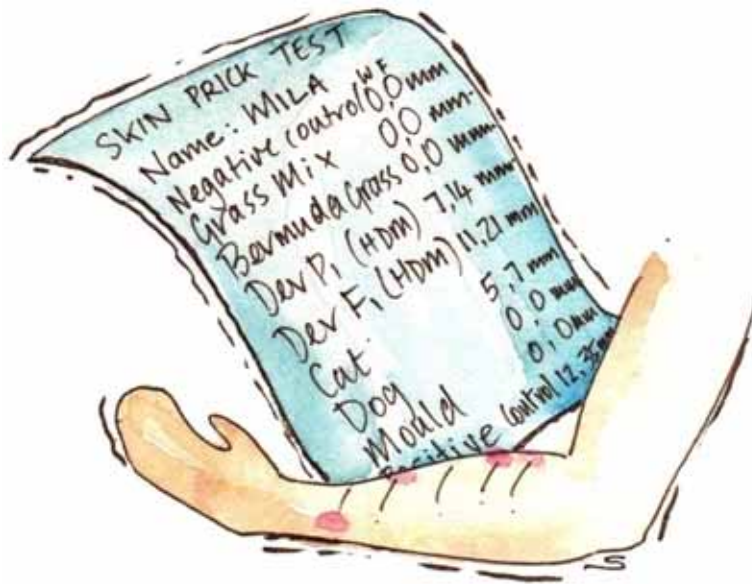 SKIN PRICK TEST
Name: MILA W F
Negative control 0,0 mm
Grass Mix 0,0 mm
Bermuda Grass 0,0 mm
Der P1 (HDM) 7,14 mm
Der F1 (HDM) 11,21 mm
Cat 5,7 mm
Dog 0,0 mm
Mould 0,0 mm
Positive control 12,35 mm
S